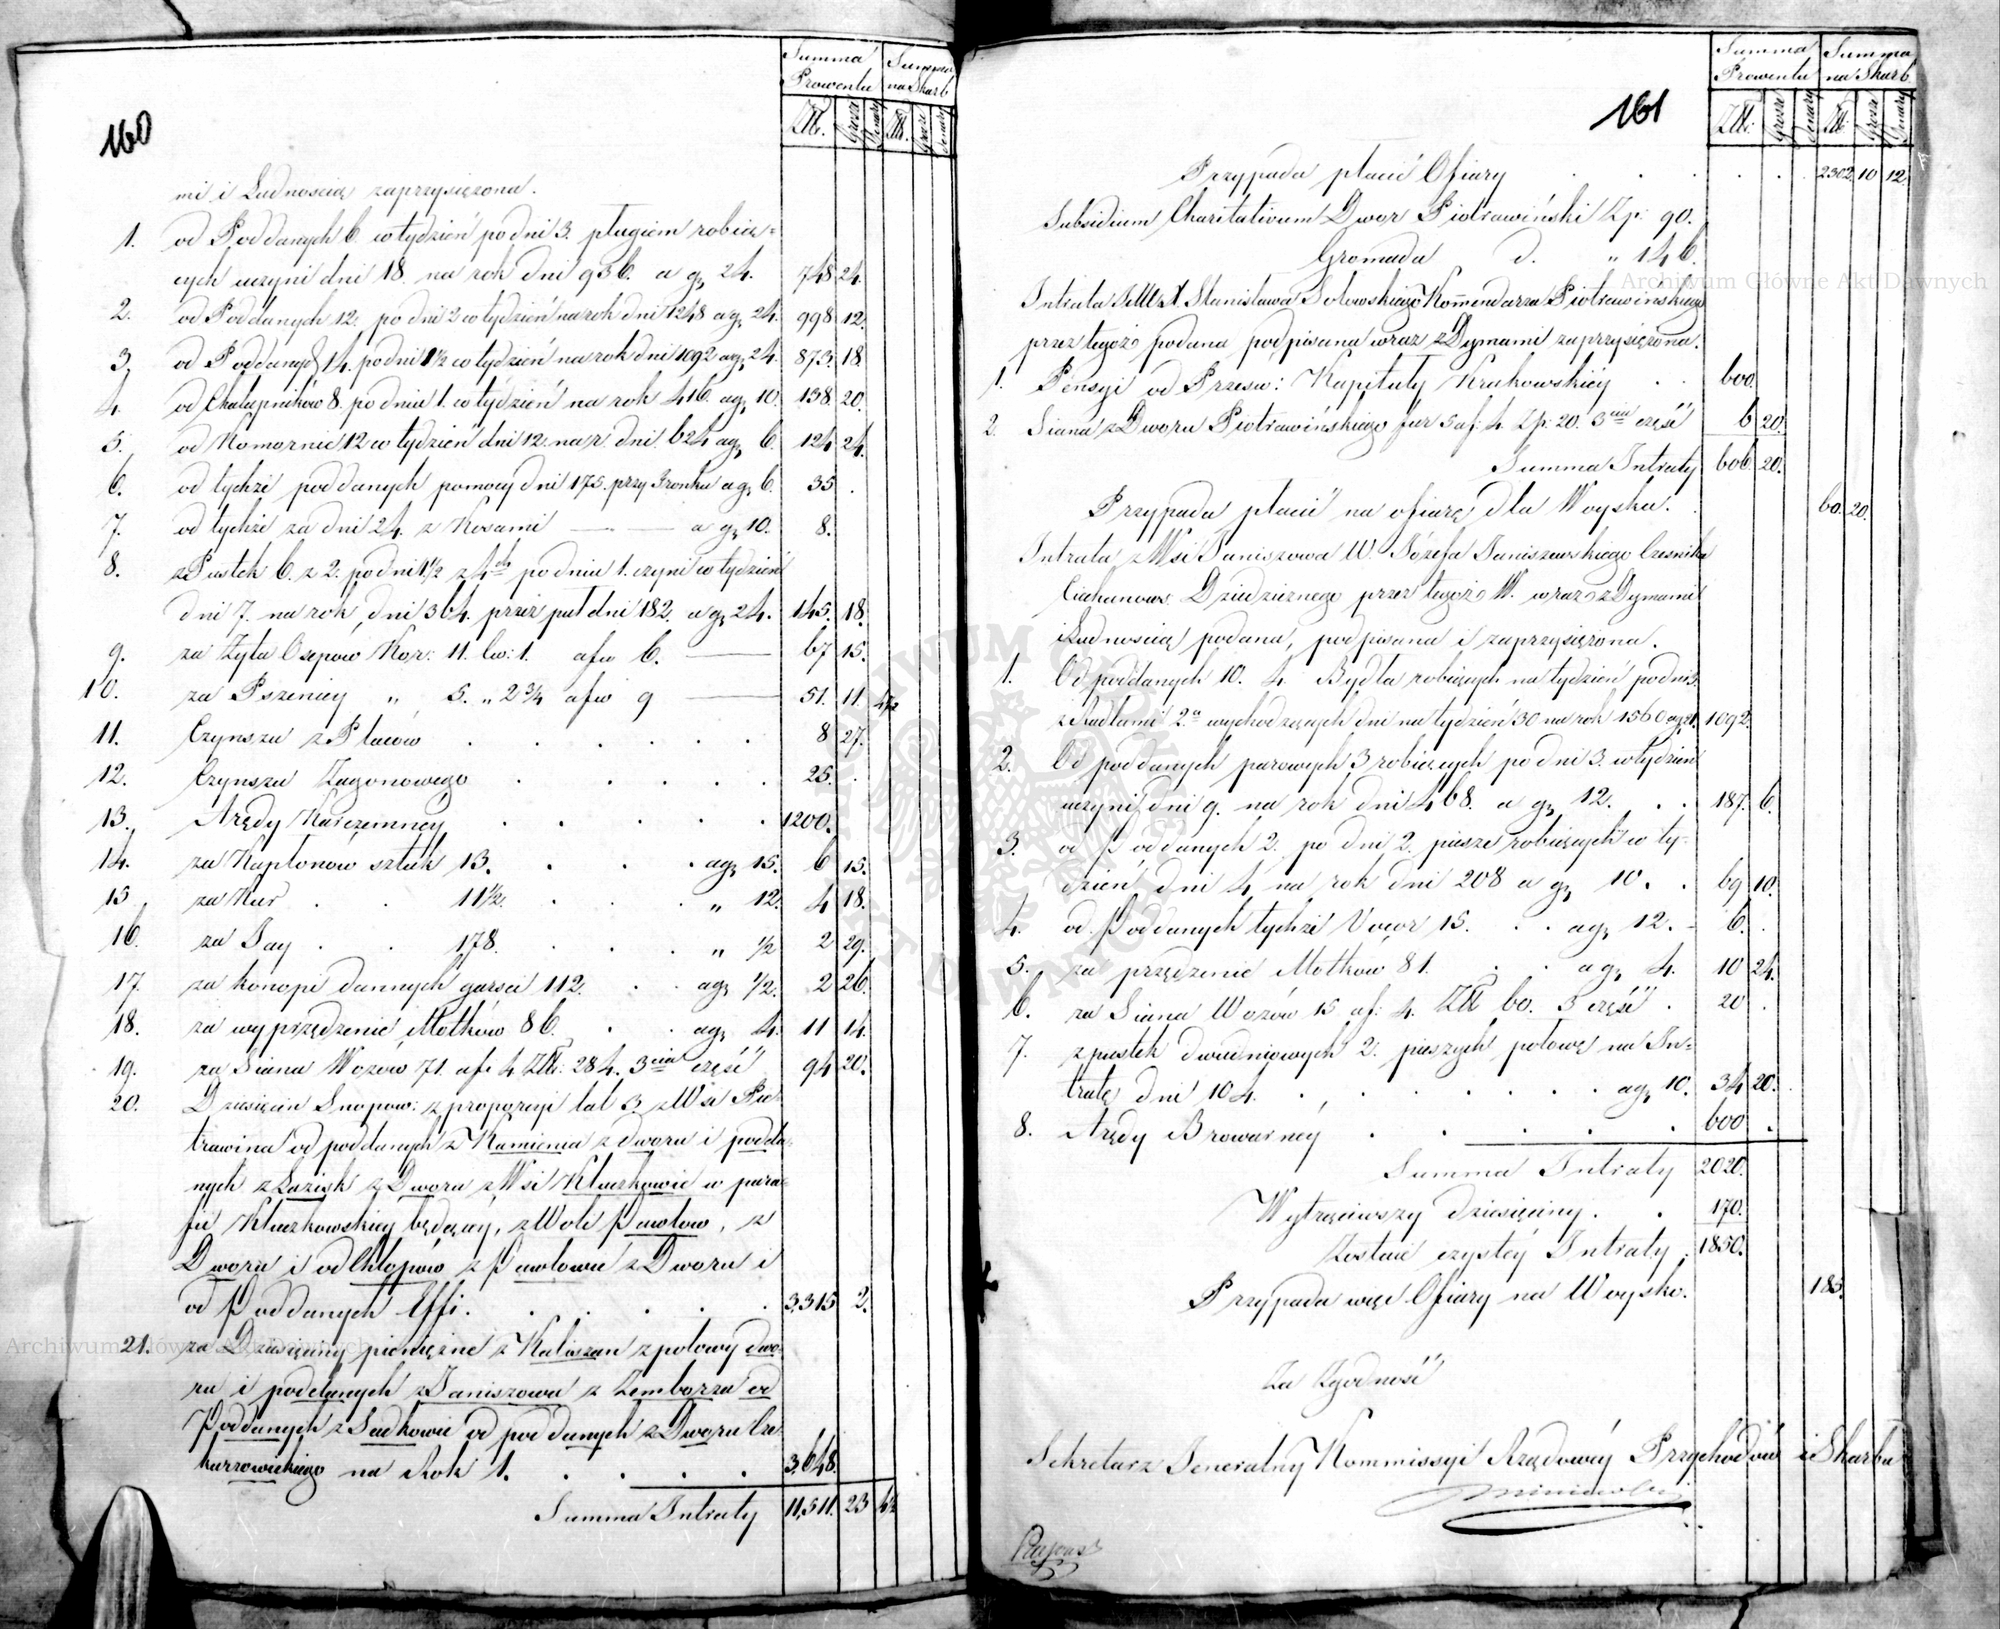 160
Summa Prowentu
Summa na Skarb
Złł. Grosze Denary Złł. Grosze Denary
mi i Ludnością zaprzysiężona.
1. od Poddanych 6. w tydzień po dni 3. pługiem robią=
cych uczyni dni 18. na rok dni 936. a gr 24. 748 24.
2. od Poddanych 12. po dni 2 w tydzień na rok dni 1248 a gr 24. 998 12.
3. od Poddanych 14. po dni 1½ w tydzień na rok dni 1092 a gr 24. 873. 18.
4. od Chałupników 8. po dniu 1. w tydzień na rok 416. a gr 10. 138. 20.
5. od Komornic 12 w tydzień dni 12. na r. dni 624 a gr 6. 124 24.
6. od tychże poddanych pomocy dni 175. przy a gr 6. 35.
7. od tychże za dni 24. z Kosami — — a gr 10. 8.
8. z Pustek 6. z 2. po dni 1½ z 4ch po dniu 1. czyni w tydzień
dni 7. na rok dni 364. przez puł dni 182. a gr 24. 145. 18.
9. za Żyta Osepów Kor: 11. ćw: 1. a fw 6. — 67 15.
10. za Pszenicy „ 5. „ 2¾ a fw 9 — 51. 11.
11. Czynszu z Placów . . . . . . 8 27.
12. Czynszu Zagonowego . . . . . 25.
13. Arędy Karczemney . . . . . 1200.
14. za Kapłonów sztuk 13. . . . a gr 15. 6 15.
15 za Kur . . 11½. . . . „ 12. 4 18.
16. za Jay . . 178. . . . „ ½ 2 29.
17. za konopi dannych garsci 112. . . a gr ½. 2 26.
18. za wyprzędzenie Motków 86. . . a gr 4. 11 14.
19. za Siana Wozów 71. a f. 4 Złł: 284. 3cia część 94 20.
20. Dziesięcin Snopow: z proporcyi lat 3 z Wsi Pio
trawina od poddanych z Kamienia z dworu i podda-
nych z Łazisk z Dworu z Wsi Kluczkowic w para-
fii Kluczkowskiey będącey, z Woli Pawłow. z
Dworu i od Chłopów z Pawłowa z Dworu i
od Poddanych Effi. . . . . . 3,315 2.
21. za Dziesięciny pieniężne z Kaliszan z połowy dwo
ru i poddanych z Janiszowa z Zemborza od
Poddanych z Sadkowic od poddanych z Dworu
na Rok 1. . . . . 3,648.
Summa Intraty 11,511. 23
161
Summa Prowentu
Summa na Skarb
Złł: Grosze Denary Złł Grosze Denary
Przypada płacić Ofiary . . . . . 2302. 10 12.
Subsidium Charitativum Dwor Piotrawiński Zp: 90.
Gromada d. „ 146.
Intrata JMX Stanisława Sołowskiego Kommendarza Piotrawińskiego
przez tegoż podana podpisana wraz z Dymami zaprzysiężona.
1. Pensyi od Przesw: Kapituły Krakowskiey . . 600.
2. Siana z Dworu Piotrawińskiego fur 5 a f: 4. Zp: 20. 3cia część 6 20.
Summa Intraty 606. 20.
Przypada płacić na ofiarę dla Woyska. 60. 20.
Intrata z Wsi Janiszowa W. Józefa Janiszewskiego Czesnika
Ciechanows. Dziedzicznego przez tegoż W. wraz z Dymami
i Ludnością podana, podpisana i zaprzysiężona.
1. Od poddanych 10. 4 Bydła robiących na tydzień po dni 3.
z Radłami wychodzących dni na tydzień 30 na rok 1560 a gr 21. 1092.
2. Od poddanych parowych 3 robiących po dni 3. w tydzień
uczyni dni 9. na rok dni 468. a gr 12. . . 187. 6.
3. od Poddanych 2. po dni 2. pieszo robiących w ty-
dzień dni 4 na rok dni 208 a gr 10. . 69 10.
4. od Poddanych tychże 15. . . a gr 12. - 6.
5. za przędzenie Motków 81. . . a gr 4. 10 24.
6. za Siana Wozów 15 a f: 4. Złł 60. 3 część . 20 .
7. z pustek dwudniowych 2. pieszych połowę na In=
tratę dni 104. . . . . . . . a gr 10. 34 20.
8. Arędy Browarney . . . . . 600 .
Summa Intraty 2020.
Wytrąciwszy dziesięciny . . 170.
Zostaie czystey Intraty . 1850.
Przypada więc Ofiary na Woysko. 185.
Za Zgodność
Sekretarz Jeneralny Kommissyi Rządowey Przychodów i Skarbu
Archiwum Główne Akt Dawnych
Archiwum Główne Akt Dawnych